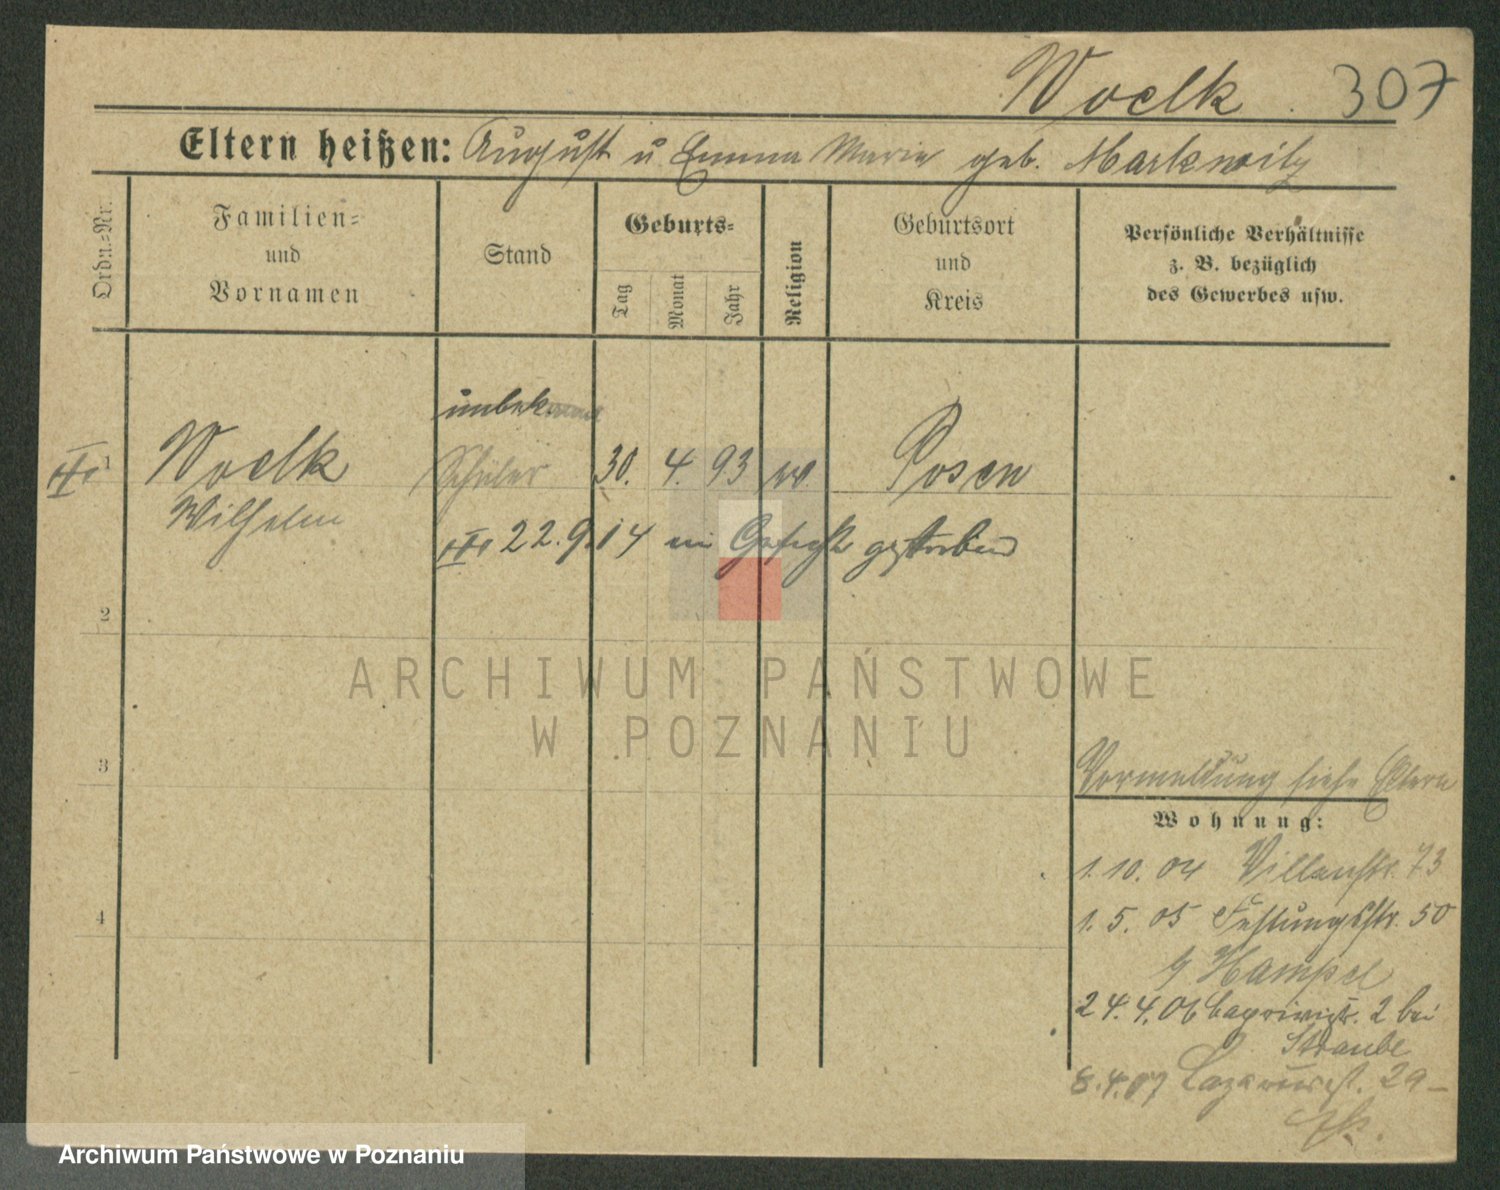 Woelk. 307
Eltern heißen: August u Emma Maria geb. Markewitz
Ordn.=Nr.
Familien=
und
Vornamen
Stand
Geburts=
Tag
Monat
Jahr
Religion
Geburtsort
und
Kreis
Persönliche Verhältnisse
z. B. bezüglich
des Gewerbes usw.
unbekannt
1 Woelk Schüler 30. 4. 93 Posen
Wilhelm
22.9.14 im Gefecht gestorben
2
3
4
ARCHIWUM PAŃSTWOWE
W POZNANIU
Vormeldung siehe Eltern
Wohnung:
1. 10. 04 Villenstr. 73
1. 5. 05 Festungsstr. 50
Hampel
24. 4. 06 Caprivistr. 2 bei
Straube
8.4.07 29
Archiwum Państwowe w Poznaniu